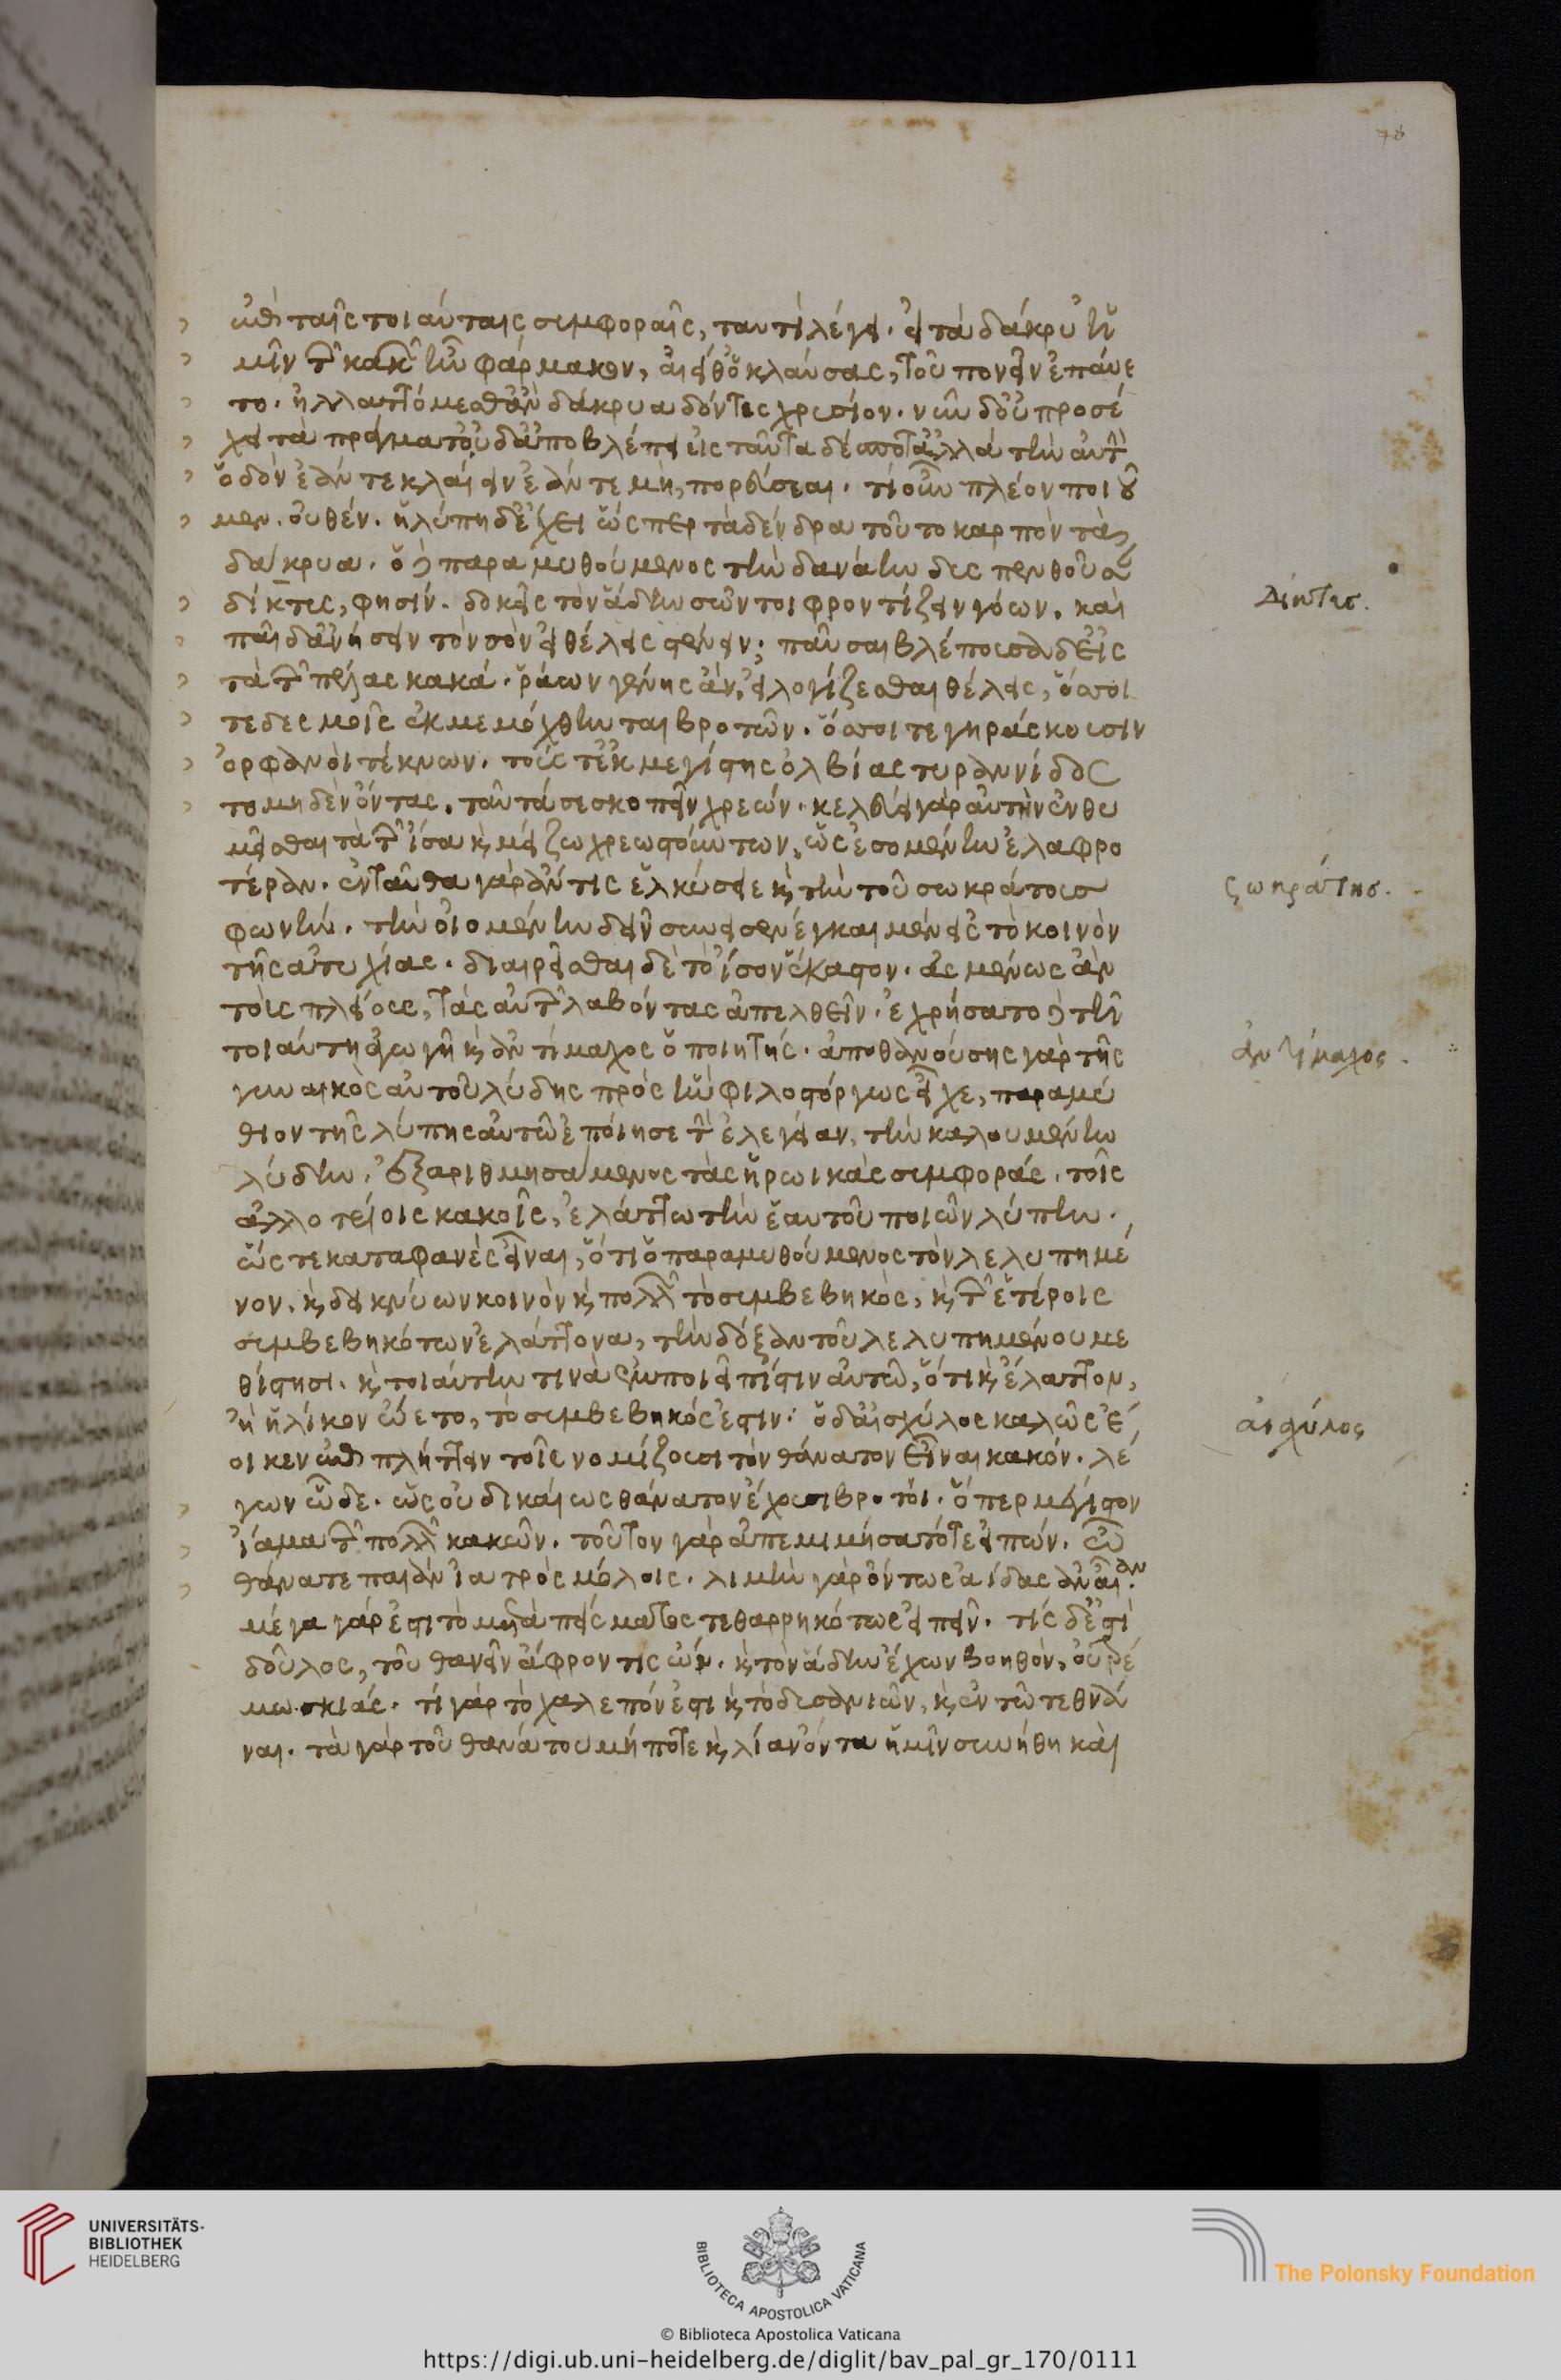 ἐπὶ ταῖς τοιαύταις συμφοραῖς, ταυτὶ λέγει. εἰ τὰ δάκρυ ἡ
μῖν τῶν κακῶν ἦν φάρμακον, ἀεί θ' ὁ κλαύσας, τοῦ πονεῖν ἐπαύε
το. ἠλλαττόμεσθ' ἂν δάκρυα δόντες χρυσίον. νῦν δ' οὐ προσέ
χει τὰ πράγματ' οὐδ' ἀποβλέπει εἰς ταῦτα δέσποτ' ἀλλὰ τὴν αὐτὴν
ὁδὸν ἐάν τε κλάειν ἐάν τε μὴ, πορεύσεται. τί οὖν πλέον ποιοῦ
μεν. οὐθέν. ἡ λύπη δ' ἔχει ὥσπερ τὰ δένδρα τοῦτο καρπὸν τὰ
δάκρυα. ὁ δὲ παραμυθούμενος τὴν δανάην δυσπενθοῦσα
δίκτυς, φησίν. δοκεῖς τὸν ἅδην σῶν τοι φροντίζειν γόων. καὶ
παῖδ' ἀνήσειν τὸν σὸν εἰ θέλεις στένειν; παῦσαι βλέπουσα δ' εἰς
τὰ τῶν πέλας κακά. ῥάων γένης ἄν, εἰ λογίζεσθαι θέλεις, ὅσοι
τε δεσμοῖς ἐκμεμόχθηνται βροτῶν. ὅσοι τε γηράσκουσιν
ὀρφανοὶ τέκνων. τούς τ' ἐκ μεγίστης ὀλβίας τυραννίδος
το μηδὲν ὄντας. ταῦτά σε σκοπεῖν χρεών. κελεύει γὰρ αὐτὴν ἐνθυ
μεῖσθαι τὰ τῶν ἴσα καὶ μείζω χρεωστούντων, ὡς ἐσομένην ἐλαφρο
τέραν. ἐνταῦθα γὰρ ἄν τις ἑλκύσειε καὶ τὴν τοῦ σωκράτους
φωνήν. τὴν οἰομένην δεῖν συνεισενέγκαι μὲν εἰς τὸ κοινὸν
τῆς ἀτυχίας. διαιρεῖσθαι δὲ τὸ ἴσον ἕκαστον. ἀσμένως ἂν
τοὺς πλείους, τὰς αὐτῶν λαβόντας ἀπελθεῖν. ἐχρήσατο δὲ τῇ
τοιαύτη ἀγωγῇ καὶ ἀντίμαχος ὁ ποιητής. ἀποθανούσης γὰρ τῆς
γυναικὸς αὐτοῦ λύδης πρὸς ἣν φιλοστόργως εἶχε, παραμύ
θιον τῆς λύπης αὐτῶ ἐποίησε τὴν ἐλεγείαν, τὴν καλουμένην
λύδην. ἐξαριθμησάμενος τὰς ἡρωικὰς συμφοράς. τοῖς
ἀλλοτρίοις κακοῖς, ἐλάττω τὴν ἑαυτοῦ ποιῶν λύπην.
ὥστε καταφανὲς εἶναι, ὅτι ὁ παραμυθούμενος τὸν λελυπημέ
νον. καὶ δεικνύων κοινὸν καὶ πολλῶν τὸ συμβεβηκός, καὶ τῶν ἑτέροις
συμβεβηκότων ἐλάττονα, τὴν δόξαν τοῦ λελυπημένου με
θίστησι. καὶ τοιαύτην τινὰ ἐμποιεῖ πίστιν αὐτῶ, ὅτι καὶ ἔλαττον,
ἢ ἡλίκον ᾤετο, τὸ συμβεβηκός ἐστιν. ὁ δ' αἰσχύλος καλῶς ἔ
οικεν ἐπιπλήττειν τοῖς νομίζουσι τὸν θάνατον εἶναι κακόν. λέ
γων ὧδε. ὡς οὐ δικαίως θάνατον ἔχουσι βροτοὶ. ὅπερ μέγιστον
ἴαμα τῶν πολλῶν κακῶν. τοῦτον γὰρ ἀπεμιμήσατό τε εἰπών. ὦ
θάνατε παιὰν ἰατρὸς μόλοις. λιμὴν γὰρ ὄντως ἀίδας ἀν αἶαν.
μέγα γάρ ἐστι τὸ μετὰ πείσματος τεθαρρηκότως εἰπεῖν. τίς δ' ἐστὶ
δοῦλος, τοῦ θανεῖν ἄφροντις ὤν. καὶ τὸν ἅδην ἔχων βοηθὸν, οὐ τρέ
μω σκιάς. τί γὰρ τὸ χαλεπόν ἐστι καὶ τὸ δυσανιῶν, καὶ ἐν τῶ τεθνά
ναι. τὰ γὰρ τοῦ θανάτου μή ποτε καὶ λίαν ὄντα ἡμῖν συνήθη καὶ
Δίκτυς.
σωκράτης.
ἀντίμαχος.
αἰσχύλος
UNIVERSITÄTS-
BIBLIOTHEK
HEIDELBERG
BIBLIOTECA APOSTOLICA VATICANA
The Polonsky Foundation
© Biblioteca Apostolica Vaticana
https://digi.ub.uni-heidelberg.de/diglit/bav_pal_gr_170/0111